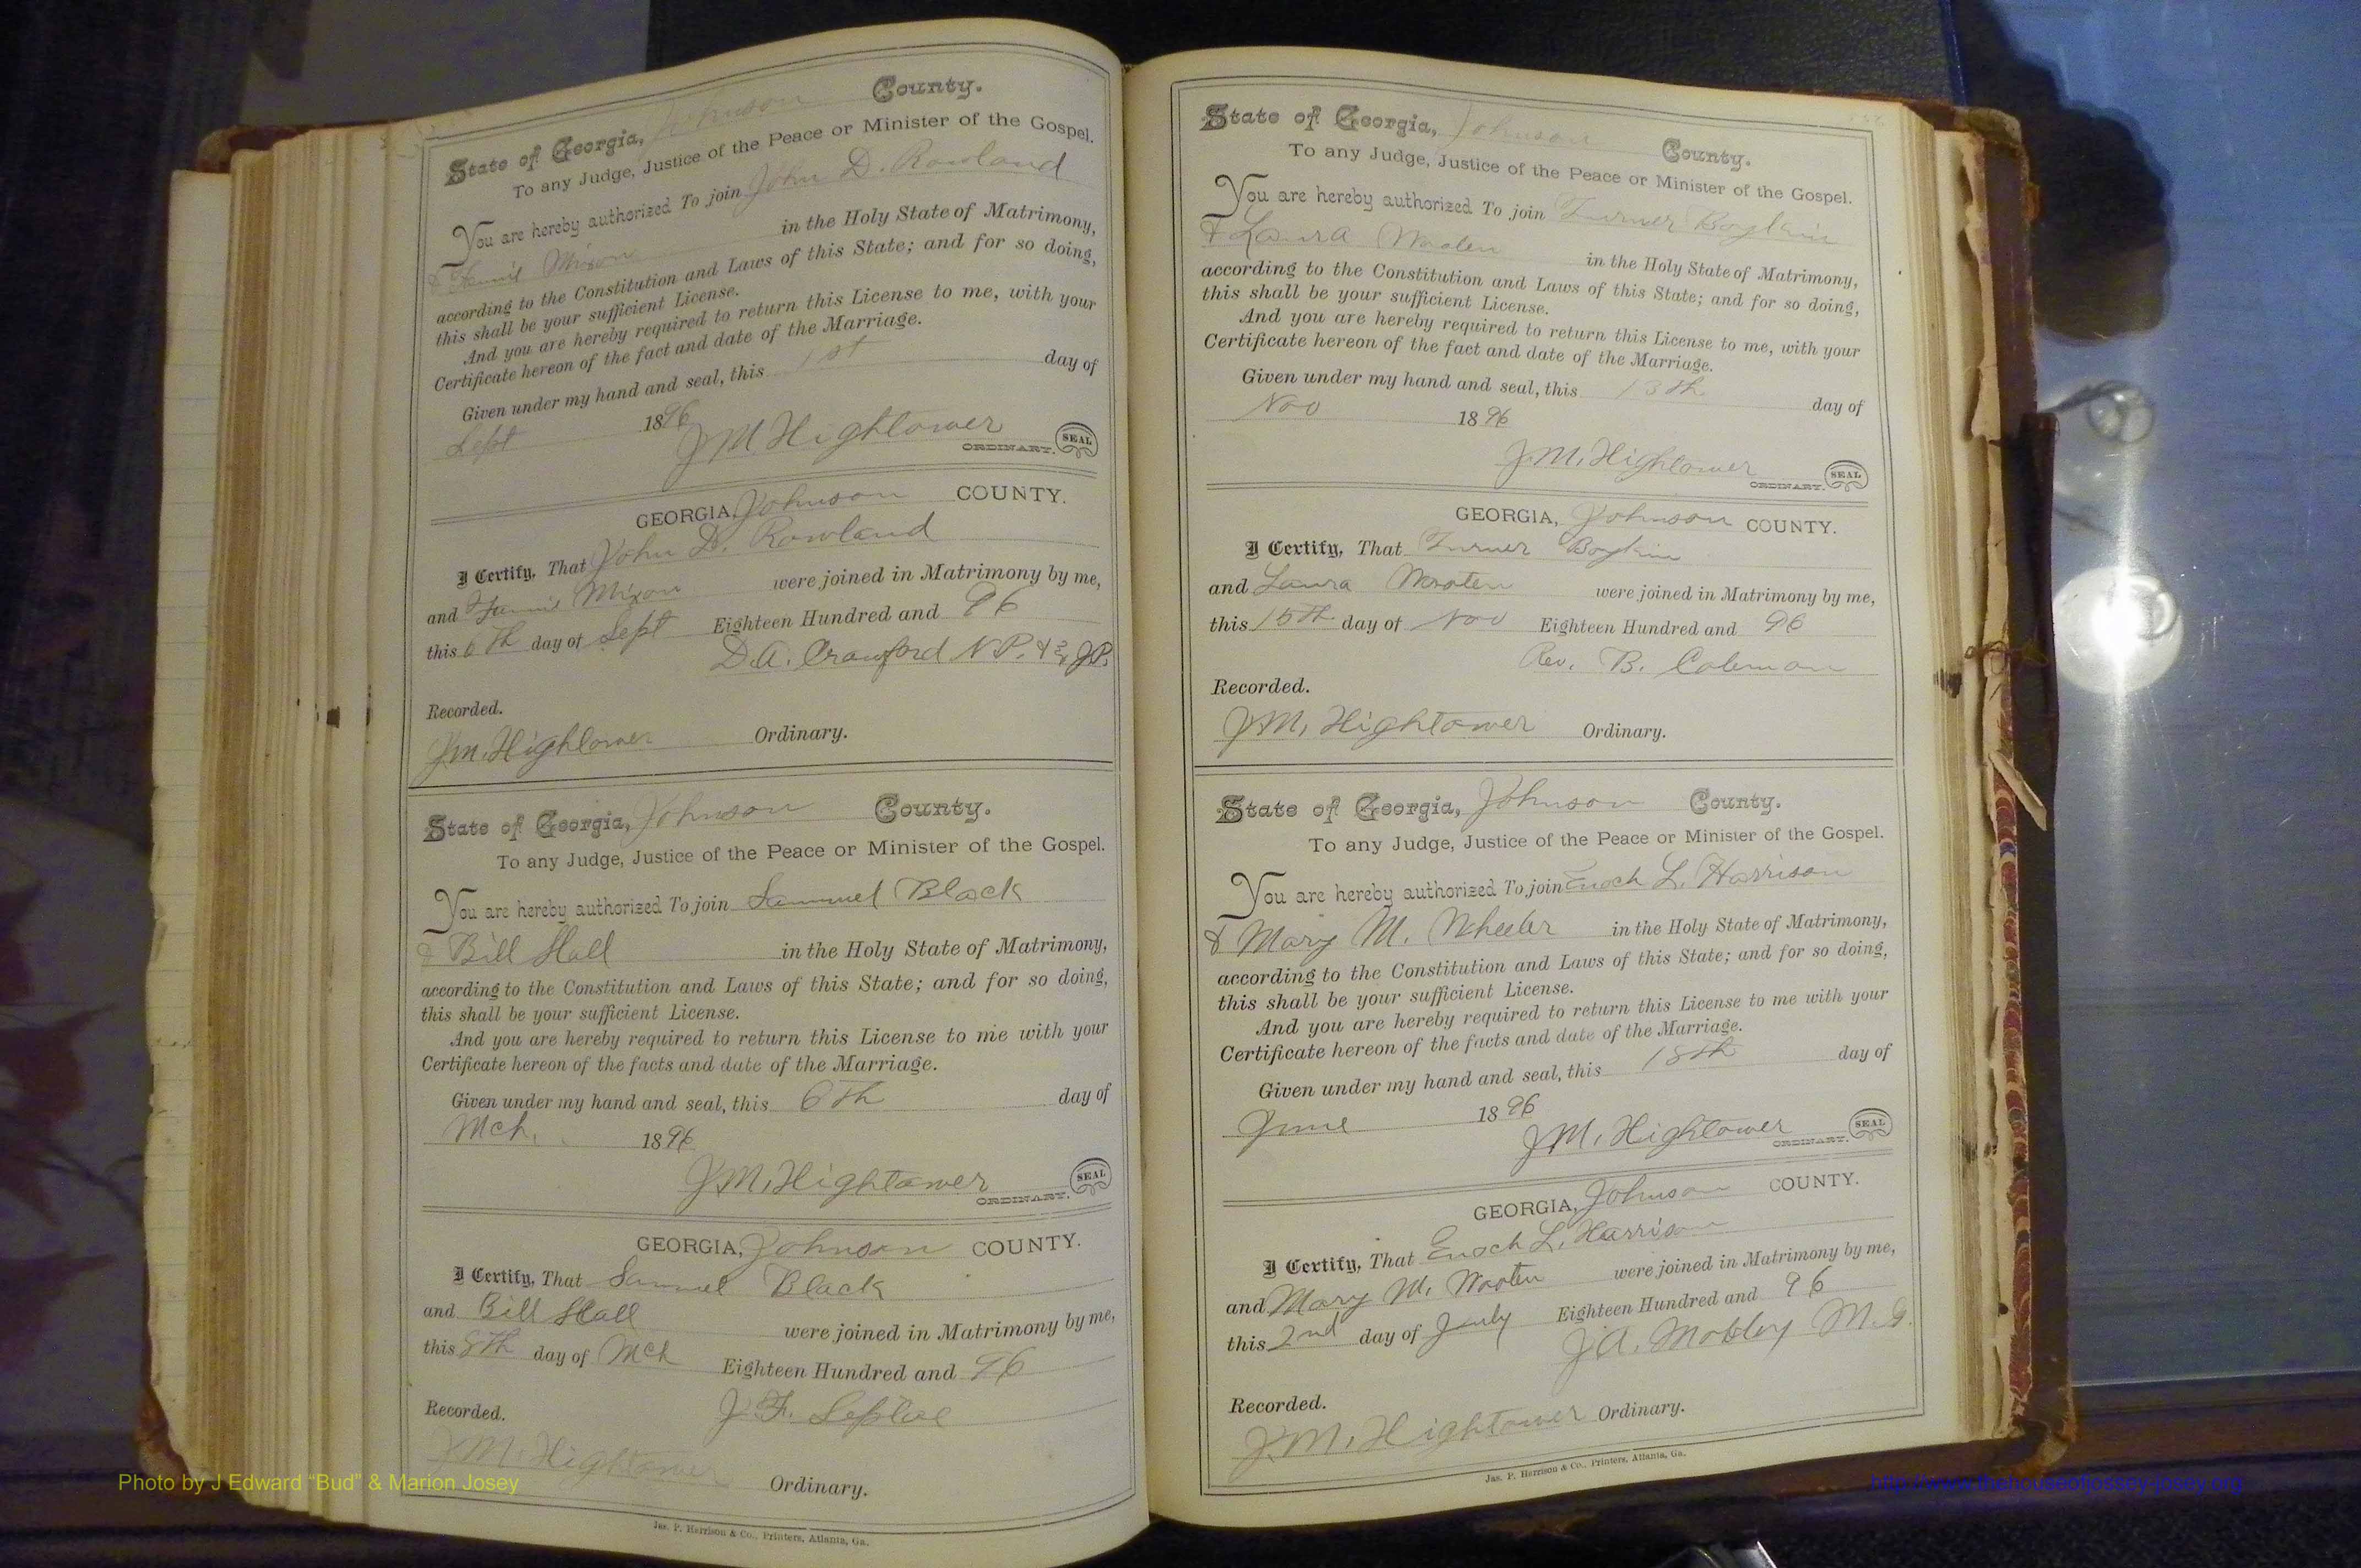 State of Georgia, Johnson County.
To any Judge, Justice of the Peace or Minister of the Gospel.
You are hereby authorized To join John D. Rowland
& Mixon in the Holy State of Matrimony,
according to the Constitution and Laws of this State; and for so doing,
this shall be your sufficient License.
And you are hereby required to return this License to me, with your
Certificate hereon of the fact and date of the Marriage.
Given under my hand and seal, this 1st day of
Sept 1896
J M Hightower ORDINARY. SEAL
GEORGIA, Johnson COUNTY.
I Certify, That John D. Rowland
and Mixon were joined in Matrimony by me,
this 6th day of Sept Eighteen Hundred and 96
D.A. Crawford N.P. & J.P.
Recorded.
J.M. Hightower Ordinary.
State of Georgia, Johnson County.
To any Judge, Justice of the Peace or Minister of the Gospel.
You are hereby authorized To join Samuel Black
& Bill Hall in the Holy State of Matrimony,
according to the Constitution and Laws of this State; and for so doing,
this shall be your sufficient License.
And you are hereby required to return this License to me with your
Certificate hereon of the facts and date of the Marriage.
Given under my hand and seal, this 6th day of
Mch. 1896
J.M. Hightower ORDINARY. SEAL
GEORGIA, Johnson COUNTY.
I Certify, That Samuel Black
and Bill Hall were joined in Matrimony by me,
this 8th day of Mch Eighteen Hundred and 96
J. F.
Recorded.
J M. Hightower Ordinary.
Jas. P. Harrison & Co., Printers, Atlanta, Ga.
State of Georgia, Johnson County.
To any Judge, Justice of the Peace or Minister of the Gospel.
You are hereby authorized To join Turner Boykin
& Laura Wooten in the Holy State of Matrimony,
according to the Constitution and Laws of this State; and for so doing,
this shall be your sufficient License.
And you are hereby required to return this License to me, with your
Certificate hereon of the fact and date of the Marriage.
Given under my hand and seal, this 13th day of
Nov 1896
J.M. Hightower ORDINARY. SEAL
GEORGIA, Johnson COUNTY.
I Certify, That Turner Boykin
and Laura Wooten were joined in Matrimony by me,
this 15th day of Nov Eighteen Hundred and 96
Rev. B. Coleman
Recorded.
J.M. Hightower Ordinary.
State of Georgia, Johnson County.
To any Judge, Justice of the Peace or Minister of the Gospel.
You are hereby authorized To join Enoch L. Harrison
& Mary M. Wheeler in the Holy State of Matrimony,
according to the Constitution and Laws of this State; and for so doing,
this shall be your sufficient License.
And you are hereby required to return this License to me with your
Certificate hereon of the facts and date of the Marriage.
Given under my hand and seal, this 18th day of
June 1896
J.M. Hightower ORDINARY. SEAL
GEORGIA, Johnson COUNTY.
I Certify, That Enoch L. Harrison
and Mary M. Wooten were joined in Matrimony by me,
this 2nd day of July Eighteen Hundred and 96
J.A. Mobley M.G.
Recorded.
J.M. Hightower Ordinary.
Jas. P. Harrison & Co., Printers, Atlanta, Ga.
Photo by J Edward “Bud” & Marion Josey
http://www.thehouseofjossey-josey.org